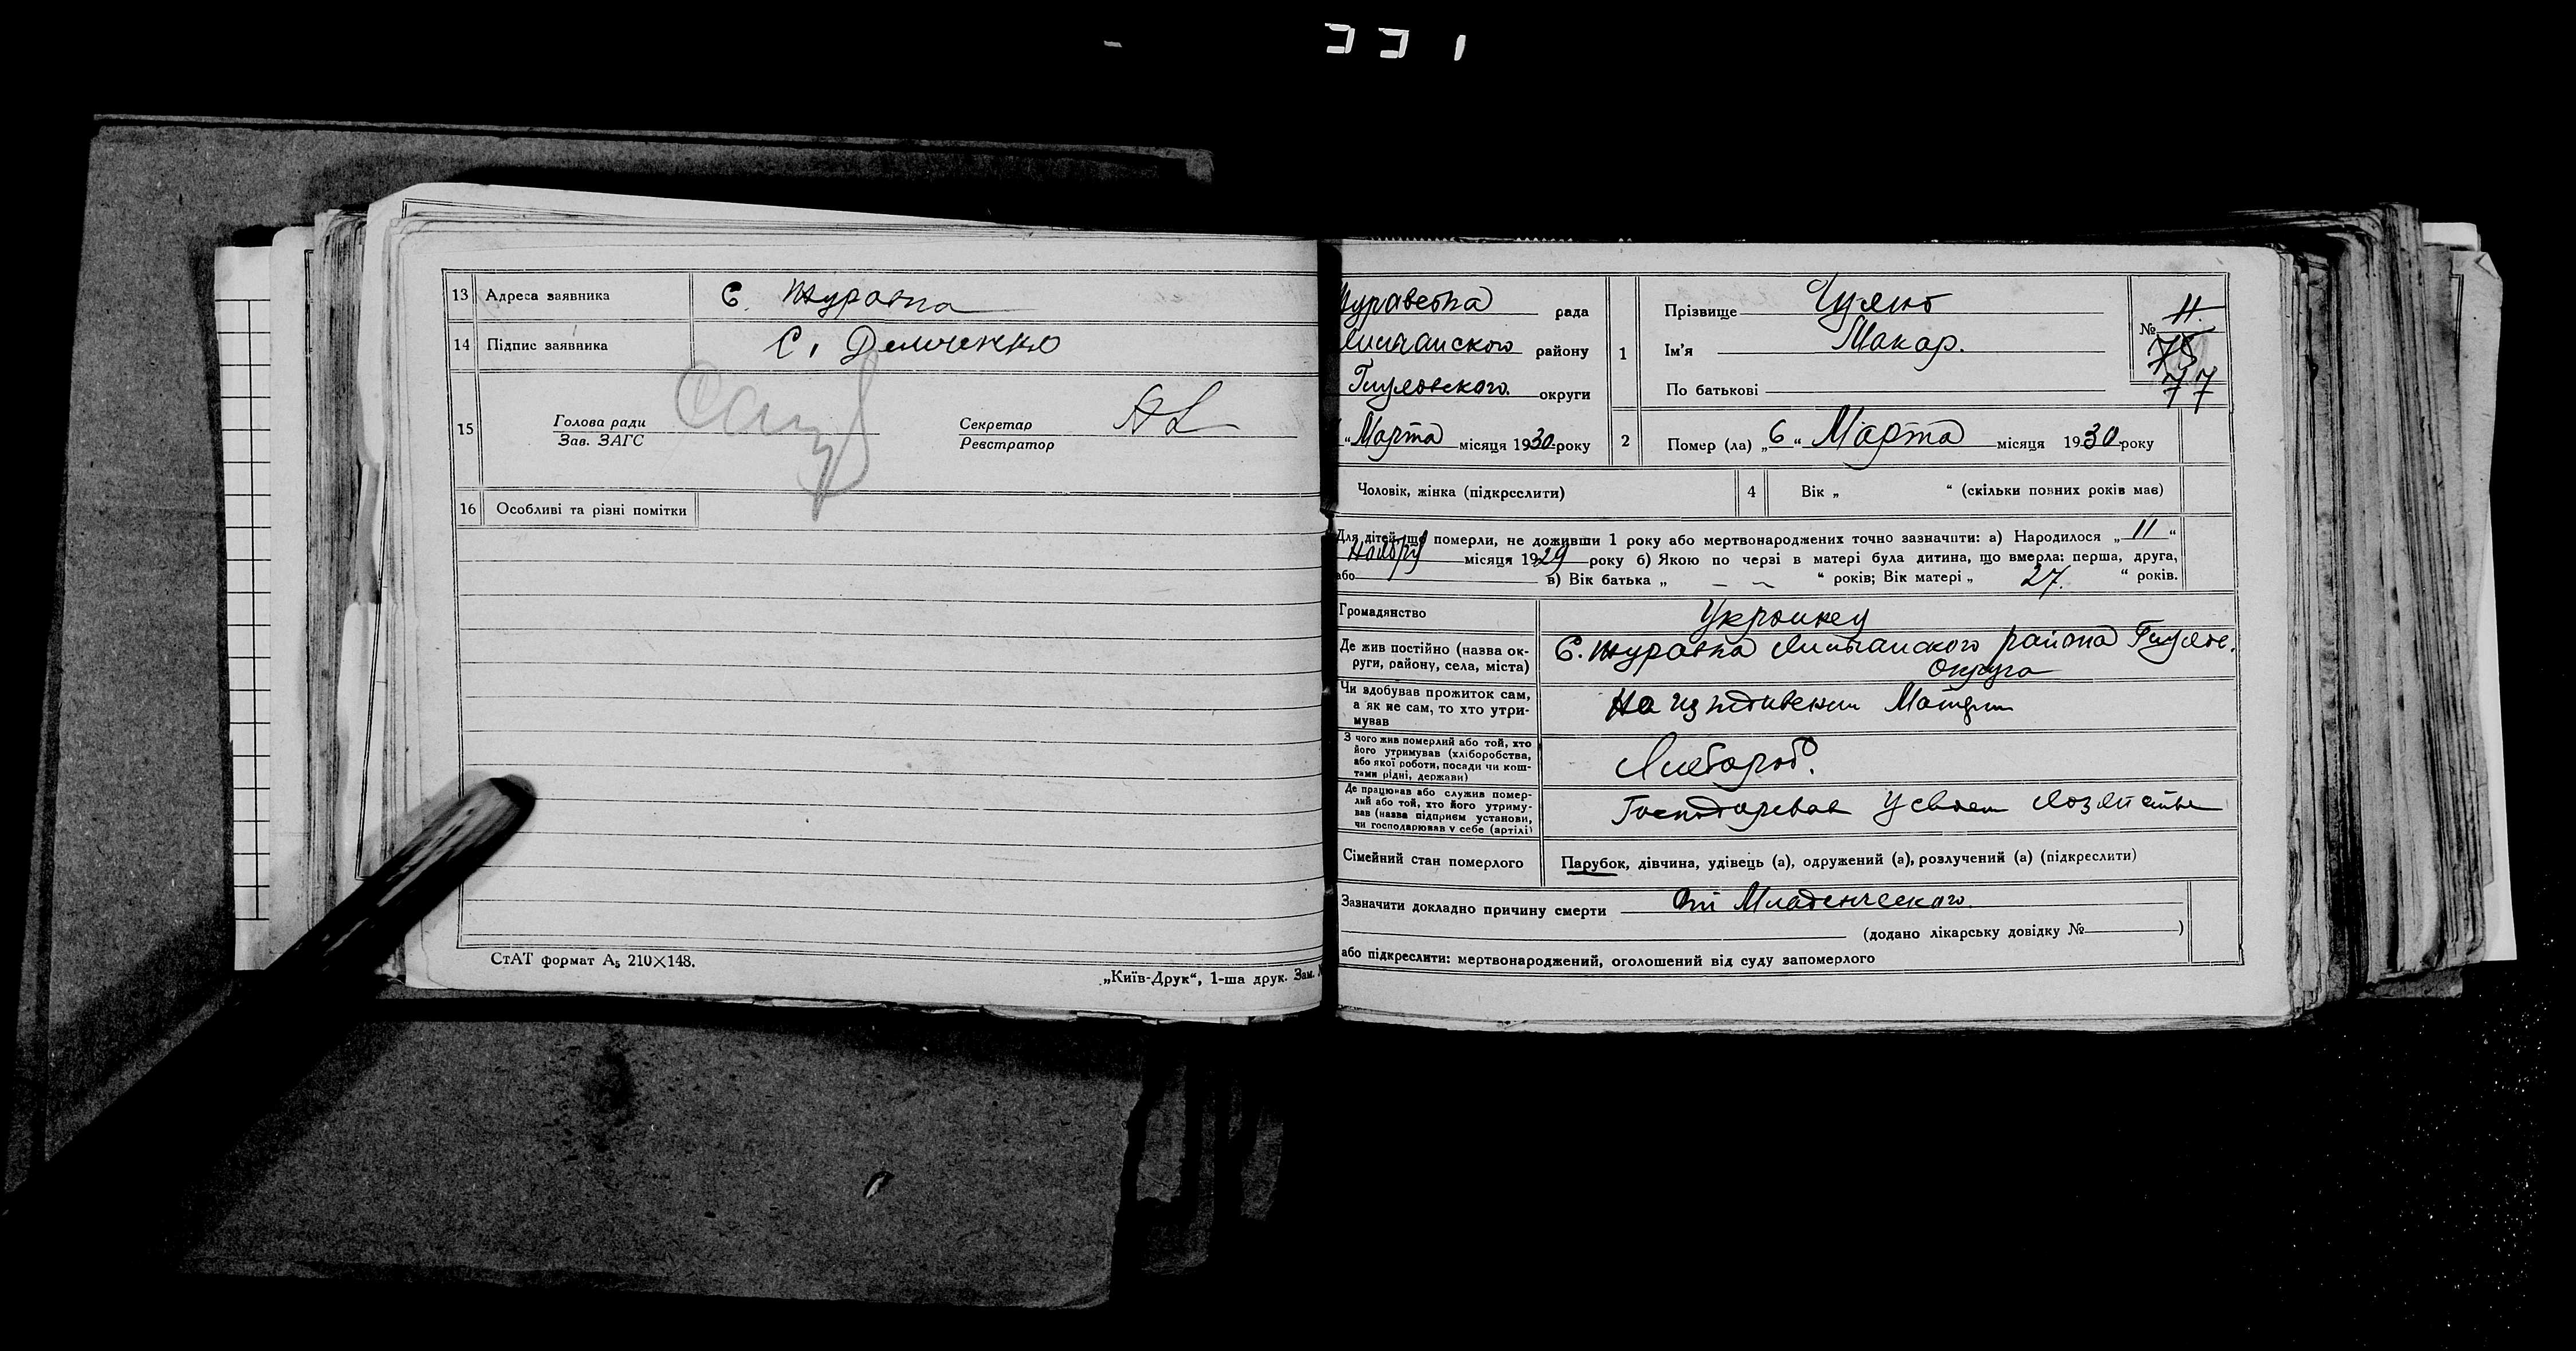 13 Адреса заявника С. Журавка
14 Підпис заявника С. Демченко
15 Голова ради
Зав. ЗАГС
Секретар
Реєстратор
16 Особливі та різні помітки
СтАТ формат А₅ 210×148.
„Київ-Друк“, 1-ша друк. Зам.
рада
району
округи
„Марта місяця 1930 року
1 Прізвище
Ім'я Макар.
По батькові
№ 11
75
77
2 Помер (ла) „6“ Марта місяця 1930 року
Чоловік, жінка (підкреслити)
4 Вік „ “ (скільки повних років має)
Для дітей, що померли, не доживши 1 року або мертвонароджених точно зазначити: а) Народилося „11“
Ноября місяця 1929 року б) Якою по черзі в матері була дитина, що вмерла: перша, друга,
або в) Вік батька „ — — “ років; Вік матері „ 27. “ років.
Громадянство Украинец
Де жив постійно (назва ок-
руги, району, села, міста) С. Журавка района
Округа
Чи здобував прожиток сам,
а як не сам, то хто утри-
мував На иждивении Матери
З чого жив померлий або той, хто
його утримував (хліборобства,
або якої роботи, посади чи кош-
тами рідні, держави) Хлебороб.
Де працював або служив помер-
лий або той, хто його утриму-
вав (назва підприєм установи,
чи господарював у себе (артілі) у своем хозяйстве
Сімейний стан померлого Парубок, дівчина, удівець (а), одружений (а), розлучений (а) (підкреслити)
Зазначити докладно причину смерти От Младенческаго
(додано лікарську довідку № )
або підкреслити: мертвонароджений, оголошений від суду запомерлого